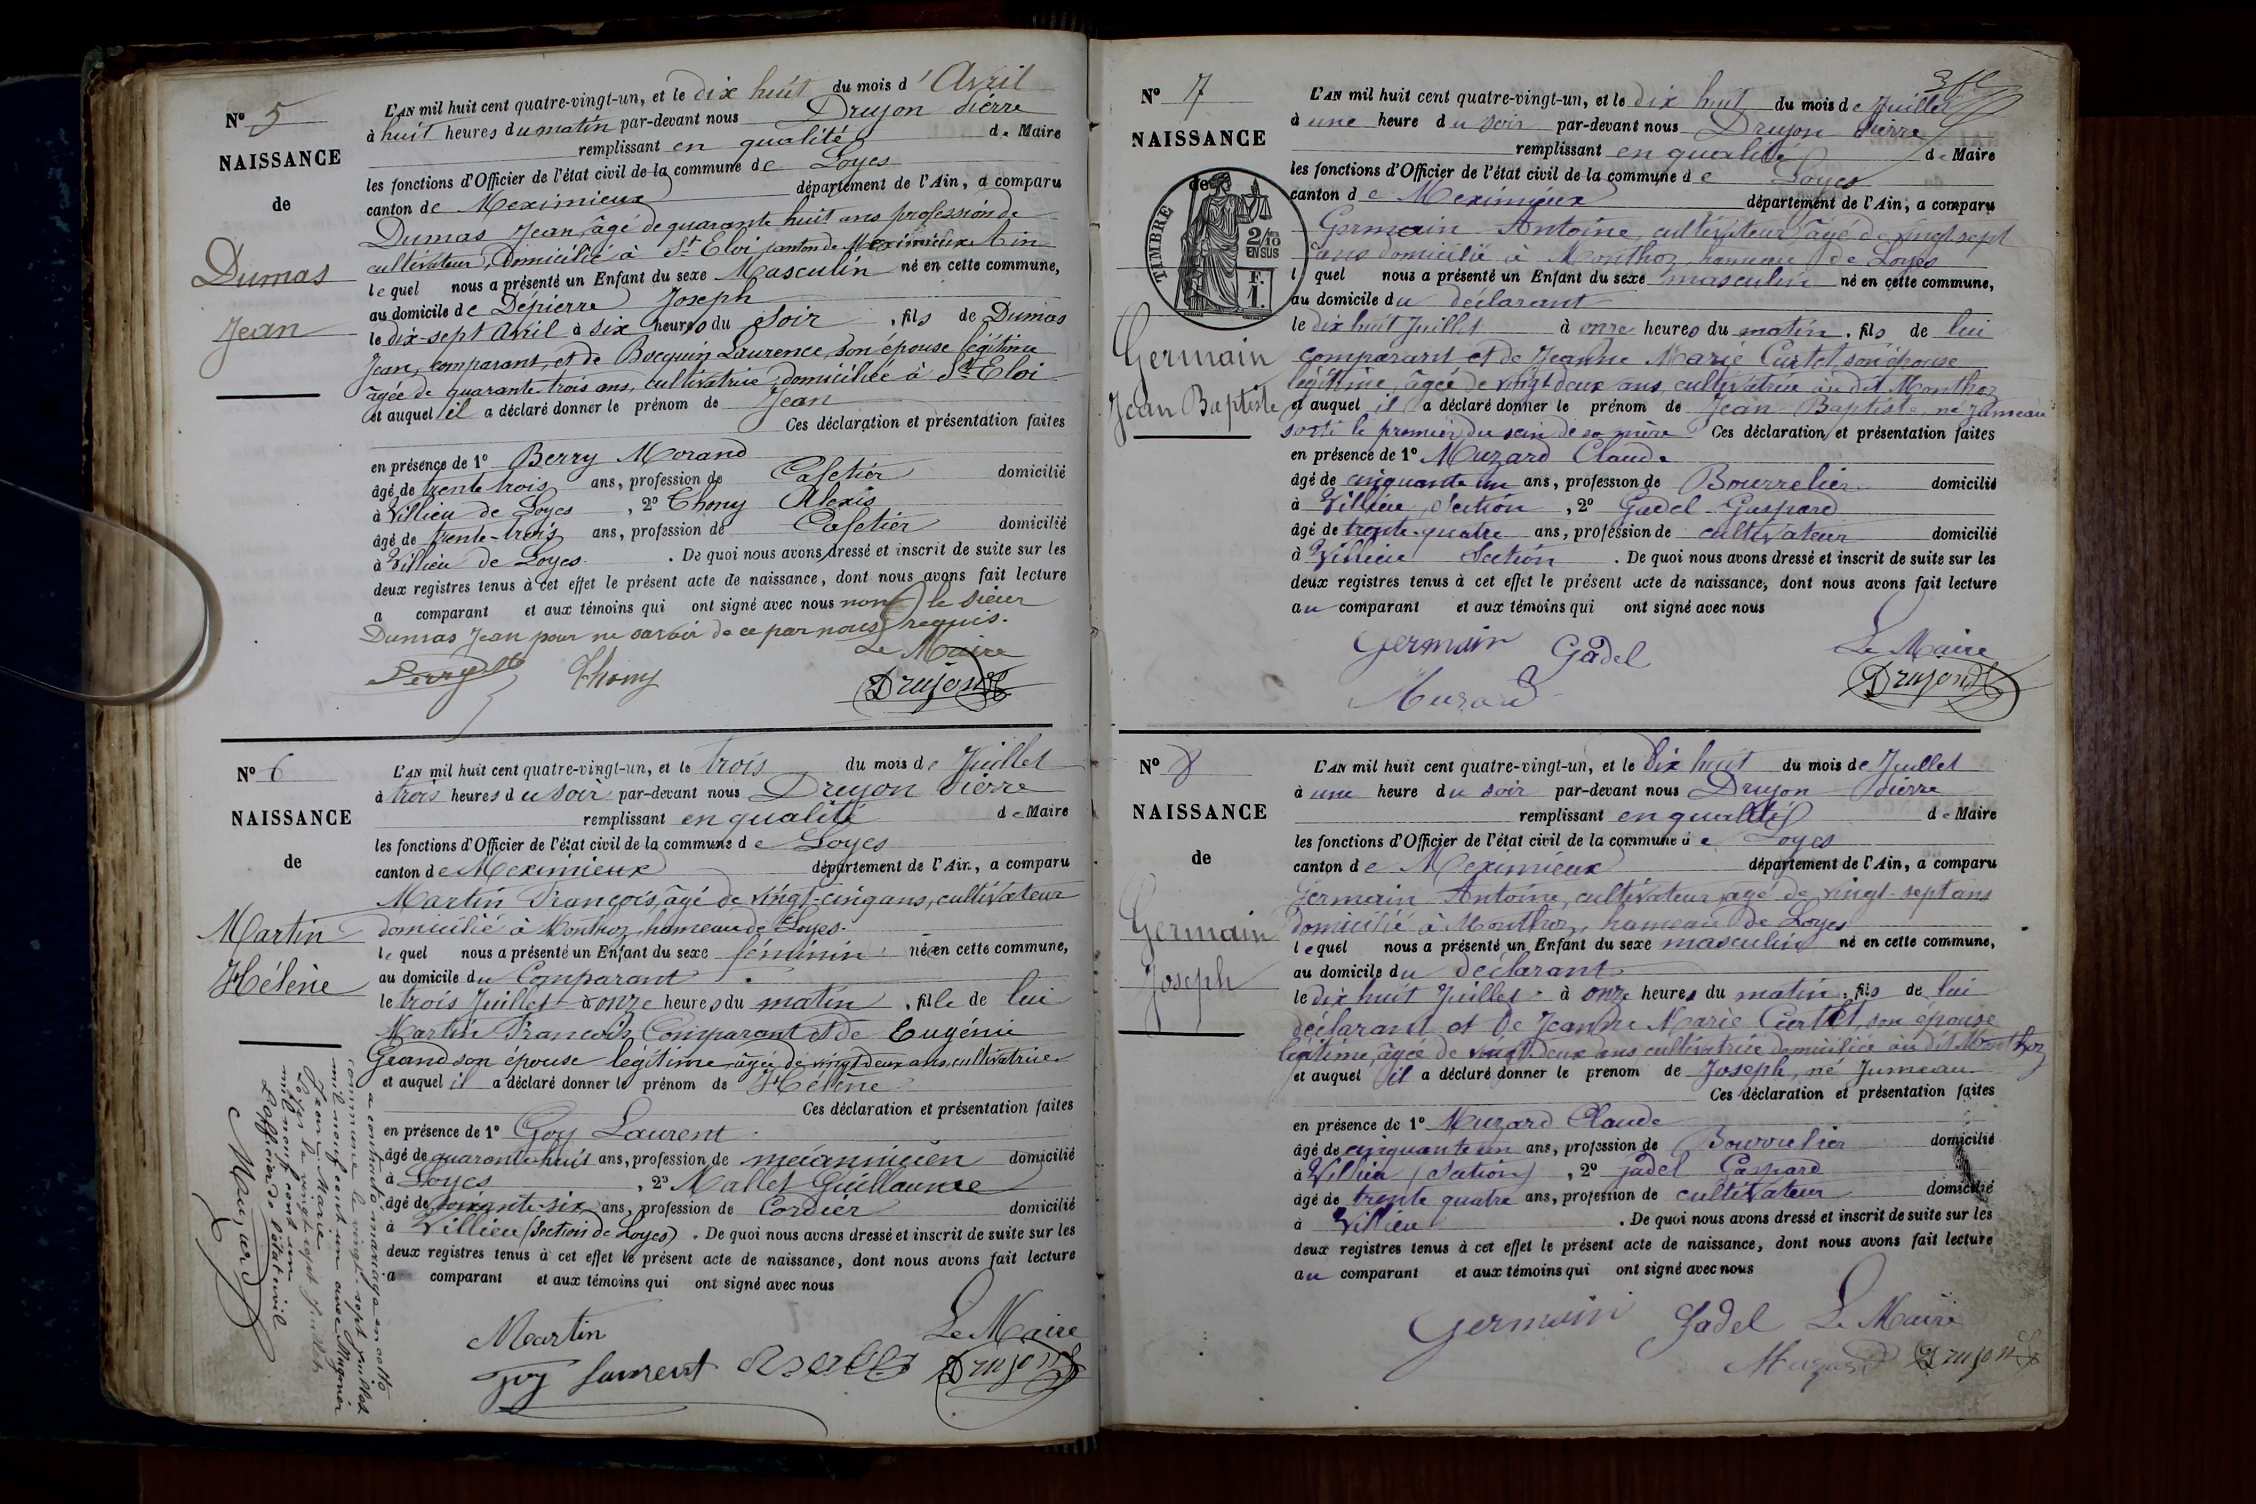 N° 5
NAISSANCE
de
Dumas
Jean
L'AN mil huit cent quatre-vingt-un, et le dix huit du mois d'Avril
à huit heures du matin par-devant nous Drujon Pierre
remplissant en qualité de Maire
les fonctions d'Officier de l'état civil de la commune de Loyes
canton de Meximieux département de l'Ain, a comparu
Dumas Jean, âgé de quarante huit ans profession de
cultivateur, domicilié à St Eloi canton de Meximieux Ain
lequel nous a présenté un Enfant du sexe Masculin né en cette commune,
au domicile de Dépierre Joseph
le dix-sept Avril à six heures du soir, fils de Dumas
Jean, comparant, et de Bocquin Laurence, son épouse légitime
âgée de quarante trois ans, cultivatrice, domiciliée à St Eloi
et auquel il a déclaré donner le prénom de Jean
Ces déclaration et présentation faites
en présence de 1° Berry Morand
âgé de trente trois ans, profession de Cafetier domicilié
à Villieu de Loyes, 2° Thomy Alexis
âgé de trente-trois ans, profession de Cafetier domicilié
à Villieu de Loyes. De quoi nous avons dressé et inscrit de suite sur les
deux registres tenus à cet effet le présent acte de naissance, dont nous avons fait lecture
a comparant et aux témoins qui ont signé avec nous non le sieur
Dumas Jean pour ne savoir de ce par nous requis.
Le Maire
Thomy Drujon
N° 6
NAISSANCE
de
Martin
Hélène
L'AN mil huit cent quatre-vingt-un, et le trois du mois de Juillet
à trois heures du soir par-devant nous Drujon Pierre
remplissant en qualité de Maire
les fonctions d'Officier de l'état civil de la commune de Loyes
canton de Meximieux département de l'Ain, a comparu
Martin François, âgé de vingt-cinq ans, cultivateur
domicilié à Monthoz, hameau de Loyes.
lequel nous a présenté un Enfant du sexe féminin née en cette commune,
au domicile du Comparant
le trois Juillet à onze heures du matin, fille de lui
Martin François Comparant et de Eugénie
Grand son épouse légitime âgée de vingt deux ans, cultivatrice
et auquel il a déclaré donner le prénom de Hélène
Ces déclaration et présentation faites
en présence de 1° Goy Laurent
âgé de quarante huit ans, profession de mécanicien domicilié
à Loyes, 2° Mallet Guillaume
âgé de soixante-six ans, profession de Cordier domicilié
à Villieu (Section de Loyes). De quoi nous avons dressé et inscrit de suite sur les
deux registres tenus à cet effet le présent acte de naissance, dont nous avons fait lecture
a comparant et aux témoins qui ont signé avec nous
Martin Le Maire
Goy Laurent Drujon
a contracté mariage en cette
commune le vingt sept juillet
mil neuf cent un avec Mugnier
Jean-Marie
Loyes le vingt sept juillet
mil neuf cent un
L'officier de l'état civil
N° 7
NAISSANCE
de
TIMBRE
2/10
EN SUS
F.
1.
Germain
Jean Baptiste
L'AN mil huit cent quatre-vingt-un, et le dix huit du mois de Juillet
à une heure du soir par-devant nous Drujon Pierre
remplissant en qualité de Maire
les fonctions d'Officier de l'état civil de la commune de Loyes
canton de Meximieux département de l'Ain, a comparu
Germain Antoine, cultivateur, âgé de vingt sept
ans domicilié à Monthoz, hameau de Loyes
lequel nous a présenté un Enfant du sexe masculin né en cette commune,
au domicile du déclarant
le dix huit Juillet à onze heures du matin, fils de lui
comparant et de Jeanne Marie Curtet, son épouse
légitime, âgée de vingt deux ans, cultivatrice au dit Monthoz
et auquel il a déclaré donner le prénom de Jean Baptiste, né Jumeau
sorti le premier du sein de sa mère Ces déclaration et présentation faites
en présence de 1° Muzard Claude
âgé de cinquante un ans, profession de Bourrelier domicilié
à Villieu, Section, 2° Gadel Gaspard
âgé de trente-quatre ans, profession de cultivateur domicilié
à Villieu Section. De quoi nous avons dressé et inscrit de suite sur les
deux registres tenus à cet effet le présent acte de naissance, dont nous avons fait lecture
au comparant et aux témoins qui ont signé avec nous
Germain Gadel Le Maire
Muzard Drujon
N° 8
NAISSANCE
de
Germain
Joseph
L'AN mil huit cent quatre-vingt-un, et le dix huit du mois de Juillet
à une heure du soir par-devant nous Drujon Pierre
remplissant en qualité de Maire
les fonctions d'Officier de l'état civil de la commune de Loyes
canton de Meximieux département de l'Ain, a comparu
Germain Antoine, cultivateur, âgé de vingt-sept ans
domicilié à Monthoz, hameau de Loyes
lequel nous a présenté un Enfant du sexe masculin né en cette commune,
au domicile du déclarant
le dix huit Juillet à onze heures du matin, fils de lui
déclarant et de Jeanne Marie Curtet, son épouse
légitime, âgée de vingt deux ans cultivatrice domiciliée au dit Monthoz
et auquel il a déclaré donner le prénom de Joseph, né Jumeau
Ces déclaration et présentation faites
en présence de 1° Muzard Claude
âgé de cinquante un ans, profession de Bourrelier domicilié
à Villieu (Section), 2° Gadel Gaspard
âgé de trente quatre ans, profession de cultivateur domicilié
à Villieu. De quoi nous avons dressé et inscrit de suite sur les
deux registres tenus à cet effet le présent acte de naissance, dont nous avons fait lecture
au comparant et aux témoins qui ont signé avec nous
Germain Gadel Le Maire
Muzard Drujon